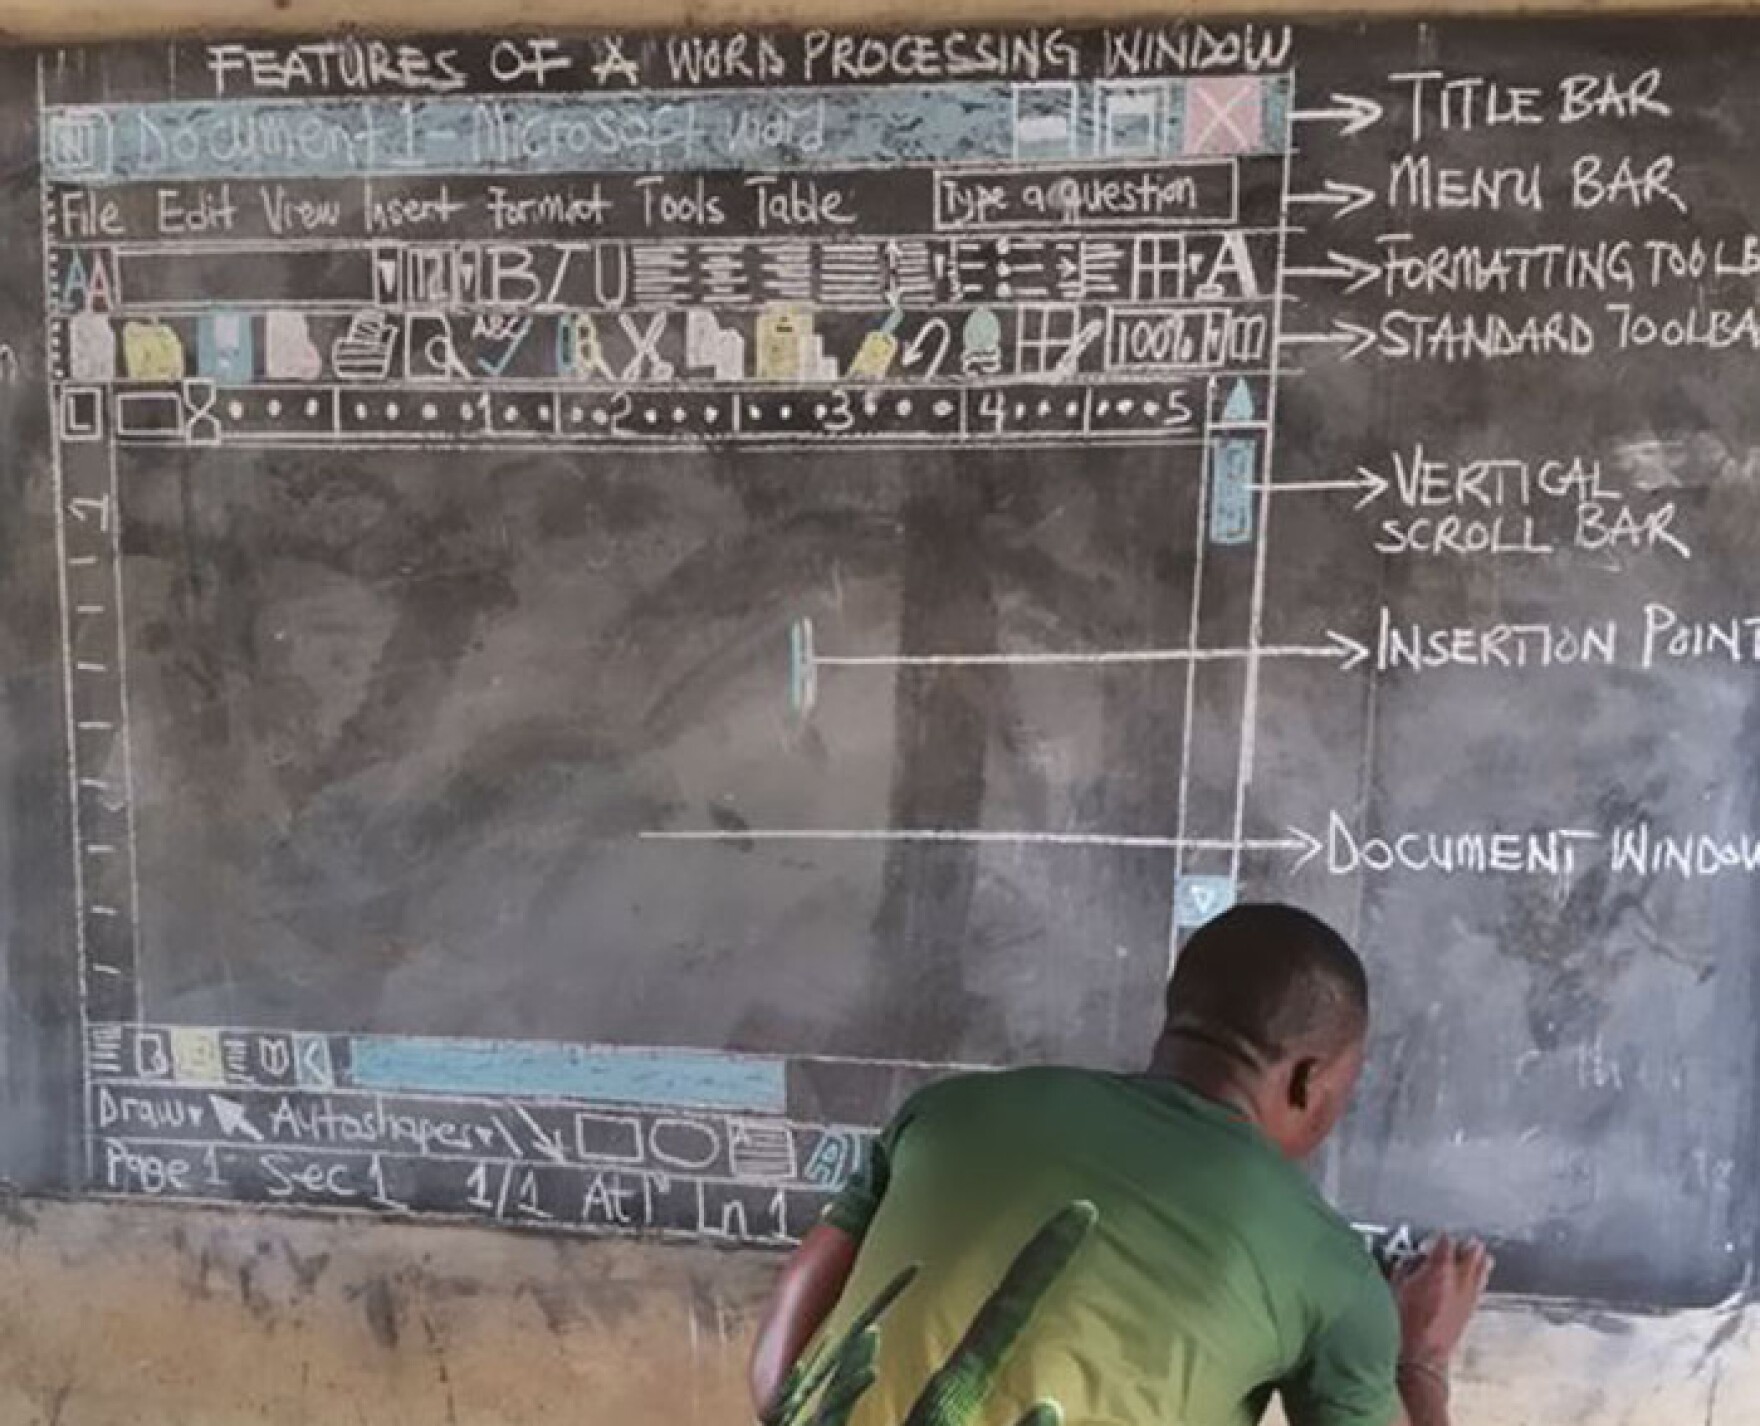 FEATURES OF A WORD PROCESSING WINDOW
Document 1 - Microsoft Word
TITLE BAR
File Edit View Insert Format Tools Table
Type a question
MENU BAR
AA
12
B I U
A
FORMATTING TOOLB
ABC
100%
STANDARD TOOLBA
L
1 2 3 4 5
1
VERTICAL
SCROLL BAR
INSERTION POINT
DOCUMENT WINDOW
Draw Autoshapes
A
Page 1 Sec 1 1/1 At 1" Ln 1
TA